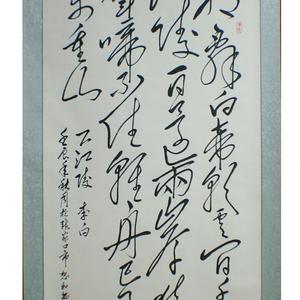 朝辞白帝彩云间千
陵一日还兩岸猿
声啼不住轻舟已过
万重山
下江陵 李白
壬辰年秋月於张家口市